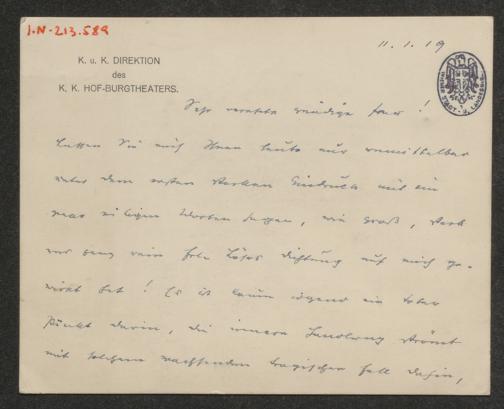 I.N-213.589
11.1.19
K. u. K. DIREKTION
des
K. K. HOF-BURGTHEATERS.
Sehr verehrte gnädige Frau!
Lassen Sie mich Ihnen heute nur unmittelbar
unter dem ersten starken Eindruck mit ein
paar eiligen Worten sagen, wie groß, stark
und ganz rein Ihre Dichtung auf mich ge-
wirkt hat! Es ist kaum irgend ein toter
Punkt darin, die innere Handlung strömt
mit solchem wachsenden tragischen Fall dahin,